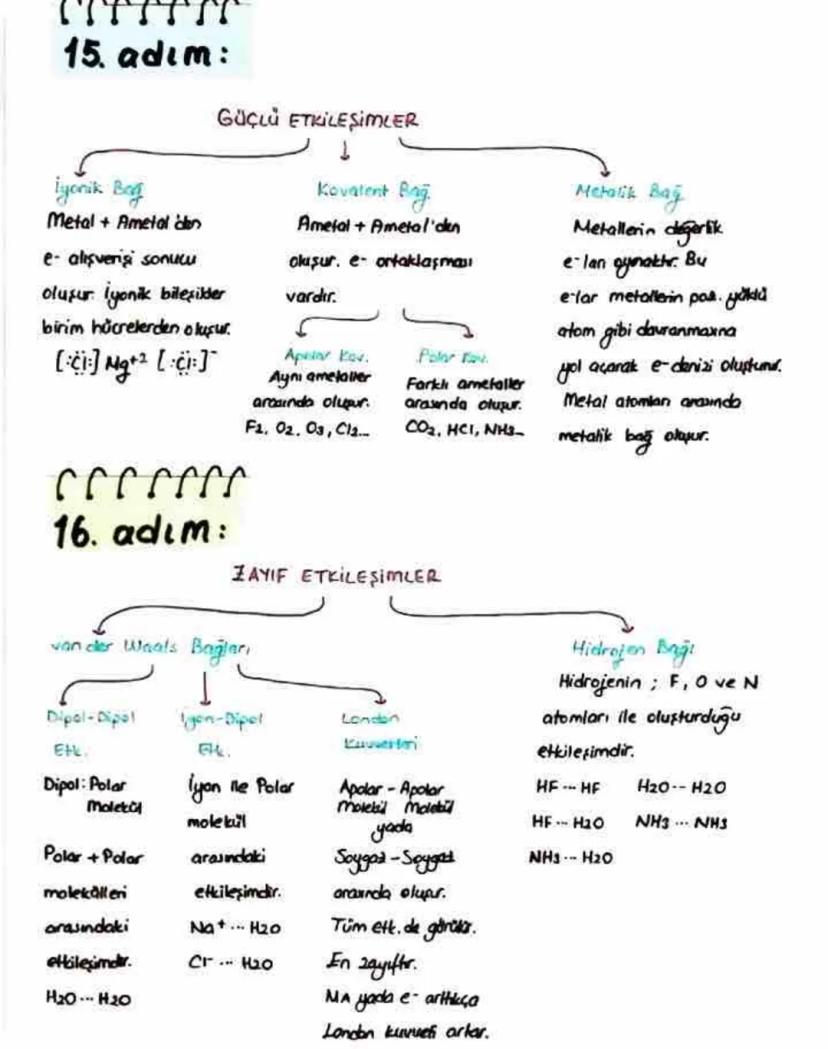 15. adım:
GÜÇLÜ ETKİLEŞİMLER
İyonik Bağ
Metal + Ametal'den
e- alışverişi sonucu
oluşur. İyonik bileşikler
birim hücrelerden oluşur.
[:C̈l:] Mg+2 [:C̈l:]-
Kovalent Bağ
Ametal + Ametal'den
oluşur. e- ortaklaşması
vardır.
Apolar Kov.
Aynı ametaller
arasında oluşur.
F2, O2, O3, Cl2...
Polar Kov.
Farklı ametaller
arasında oluşur.
CO2, HCl, NH3...
Metalik Bağ
Metallerin değerlik
e-ları oynaktır. Bu
e-lar metallerin poz. yüklü
atom gibi davranmasına
yol açarak e-denizi oluşturur.
Metal atomları arasında
metalik bağ oluşur.
16. adım:
ZAYIF ETKİLEŞİMLER
van der Waals Bağları
Dipol-Dipol
Etk.
Dipol: Polar
Molekül
Polar + Polar
molekülleri
arasındaki
etkileşimdir.
H2O ... H2O
İyon-Dipol
Etk.
İyon ile Polar
molekül
arasındaki
etkileşimdir.
Na+ ... H2O
Cl- ... H2O
London
Kuvvetleri
Apolar - Apolar
Molekül Molekül
yada
Soygaz - Soygaz
arasında oluşur.
Tüm etk. de görülür.
En zayıftır.
MA yada e- arttıkça
London kuvveti artar.
Hidrojen Bağı
Hidrojenin ; F, O ve N
atomları ile oluşturduğu
etkileşimdir.
HF ... HF H2O -- H2O
HF ... H2O NH3 ... NH3
NH3 ... H2O